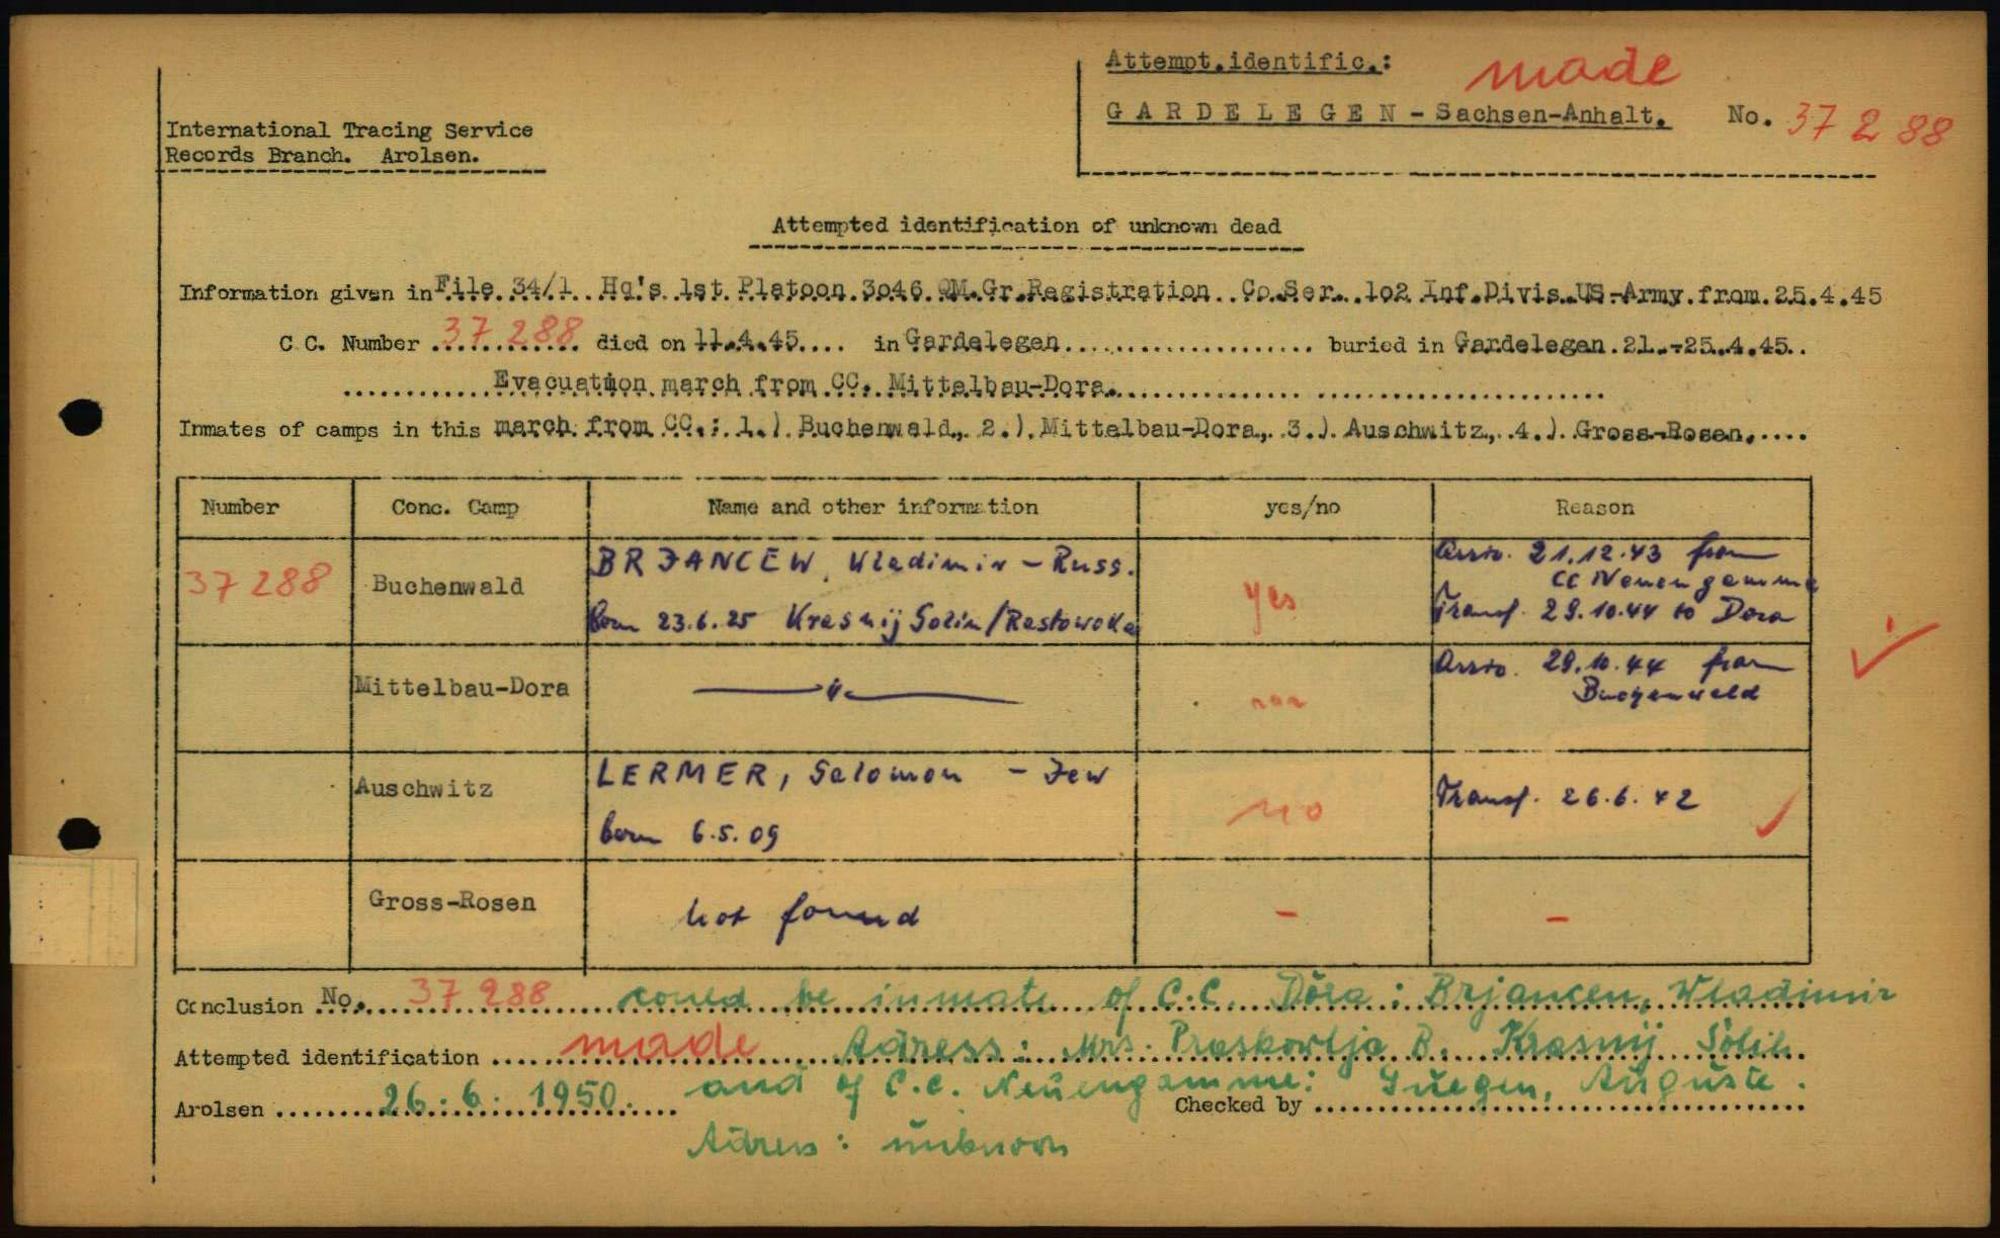 Attempt.identific.: made
GARDELEGEN - Sachsen-Anhalt. No. 37 288
International Tracing Service
Records Branch. Arolsen.
Attempted identification of unknown dead
Information given in File 34/1 Hq's 1st Platoon 3046 QM.Gr.Registration Co.Ser. 102 Inf.Divis.US-Army from 25.4.45
C.C. Number 37 288 died on 11.4.45 in Gardelegen buried in Gardelegen 21.-25.4.45.
Evacuation march from CC. Mittelbau-Dora.
Inmates of camps in this march from CC.: 1.) Buchenwald, 2.) Mittelbau-Dora, 3.) Auschwitz, 4.) Gross-Rosen.
Number Conc. Camp Name and other information yes/no Reason
37 288 Buchenwald BRJANCEW, Wladimir - Russ. yes Arriv. 21.12.43 from
CC Neuengamme
born 23.6.25 Krasnij Solin/Rostowska Transf. 29.10.44 to Dora
Mittelbau-Dora — " — Arriv. 29.10.44 from
Buchenwald
Auschwitz LERMER, Salomon - Jew no Transf. 26.6.42
born 6.5.09
Gross-Rosen not found - -
Conclusion No. 37 288 could be inmate of C.C. Dora: Brjancew, Wladimir
Attempted identification made Adress: Mrs. B. Krasnij
and of C.C. Neuengamme: Auguste.
Arolsen 26.6.1950. Checked by
Adress: unknown